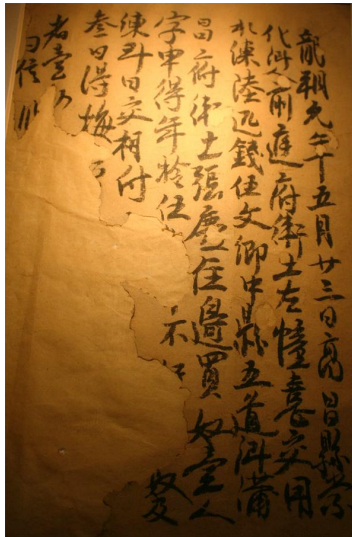 龍朔元年五月廿三日高昌縣崇
化鄉人前庭府衛士左憧憙交用
水練陸疋錢伍文柳中縣五道鄉蒲
昌府衛士張慶住邊買奴壹人
字申得年拾伍 不 奴及
練到日交相付
叁日得悔
者壹